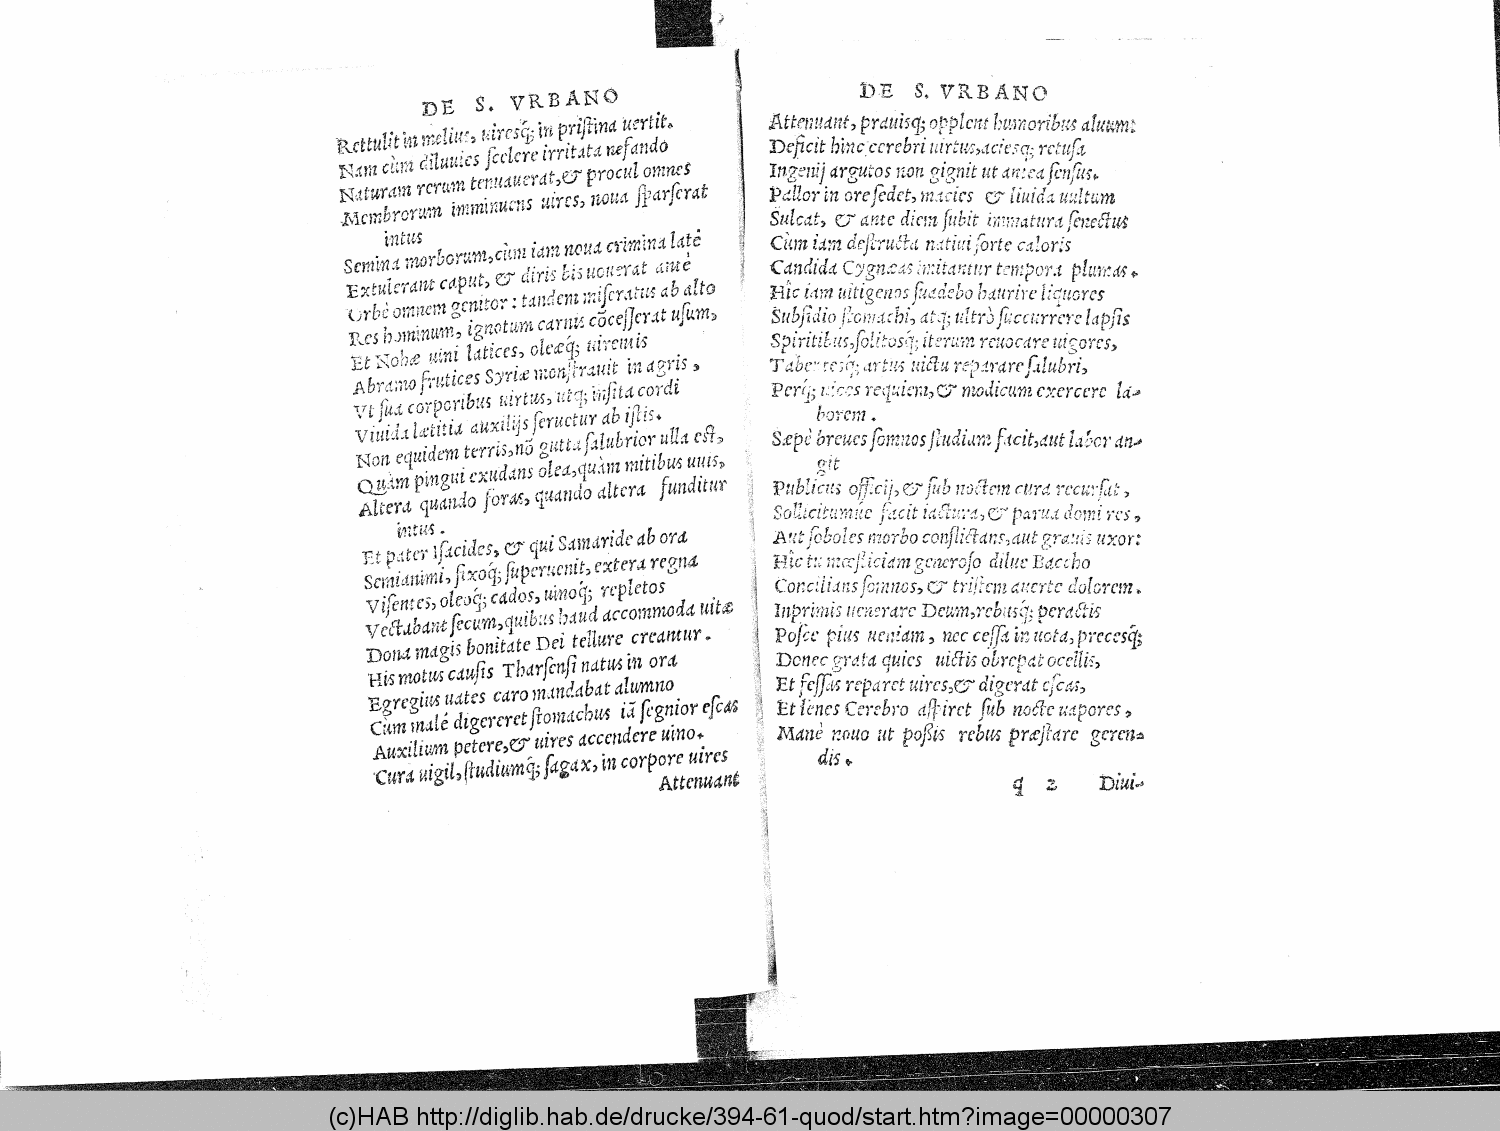 DE S. VRBANO
Rettulit in melius, uiresq́; in priſtina uertit.
Nam cùm diluuies ſcelere irritata nefando
Naturam rerum tenuauerat,& procul omnes
Membrorum imminuens uires, noua ſparſerat
intus
Semina morborum,cùm iam noua crimina latè
Extulerant caput, & diris bis uouerat antè
Orbē omnem genitor: tandem miſeratus ab alto
Res hominum, ignotum carnis cōceſſerat uſum,
Et Nohæ uini latices, oleæq́; uirentis
Abramo frutices Syriæ monſtrauit in agris,
Vt ſua corporibus uirtus, utq; inſita cordi
Viuida lætitia auxilijs ſeruetur ab iſtis.
Non equidem terris,nō gutta ſalubrior ulla eſt,
Quàm pingui exudans olea,quàm mitibus uuis,
Altera quando foras, quando altera funditur
intus.
Et pater Iſacides, & qui Samaride ab ora
Semianimi, fixoq́; ſuperuenit, extera regna
Viſentes, oleoq́; cados, uinoq́; repletos
Vectabant ſecum,quibus haud accommoda uitæ
Dona magis bonitate Dei tellure creantur.
His motus cauſis Tharſenſi natus in ora
Egregius uates caro mandabat alumno
Cùm malé digereret ſtomachus iā ſegnior eſcas
Auxilium petere,& uires accendere uino.
Cura uigil, ſtudiumq́; ſagax, in corpore uires
Attenuant
DE S. VRBANO
Attenuant, prauisq; opplent humoribus aluum:
Deficit hinc cerebri uirtus,aciesq; retuſa
Ingenij argutos non gignit ut antea ſenſus.
Pallor in ore ſedet, macies & liuida uultum
Sulcat, & ante diem ſubit immatura ſenectus
Cùm iam deſtructa natiui forte caloris
Candida Cygnæas imitantur tempora plumas.
Hîc iam uitigenos ſuadebo haurire liquores
Subſidio ſtomachi, atq; ultrò ſuccurrere lapſis
Spiritibus,ſolitosq́; iterum reuocare uigores,
Tabentesq́; artus uictu reparare ſalubri,
Perq́; uices requiem,& modicum exercere la-
borem.
Sæpè breues ſomnos ſtudium facit,aut labor an-
git
Publicus officij, & ſub noctem cura recurſat,
Sollicitumúe facit iactura,& parua domi res,
Aut ſoboles morbo conflictans,aut grauis uxor:
Hîc tu mœſticiam generoſo dilue Baccho
Concilians ſomnos, & triſtem auerte dolorem.
Inprimis uenerare Deum,rebusq́; peractis
Poſce pius ueniam, nec ceſſa in uota,precesq́;
Donec grata quies uictis obrepat ocellis,
Et feſſas reparet uires,& digerat eſcas,
Et lenes Cerebro aſpiret ſub nocte uapores,
Manè nouo ut poßis rebus præſtare geren-
dis.
q 2 Diui-
(c)HAB http://diglib.hab.de/drucke/394-61-quod/start.htm?image=00000307